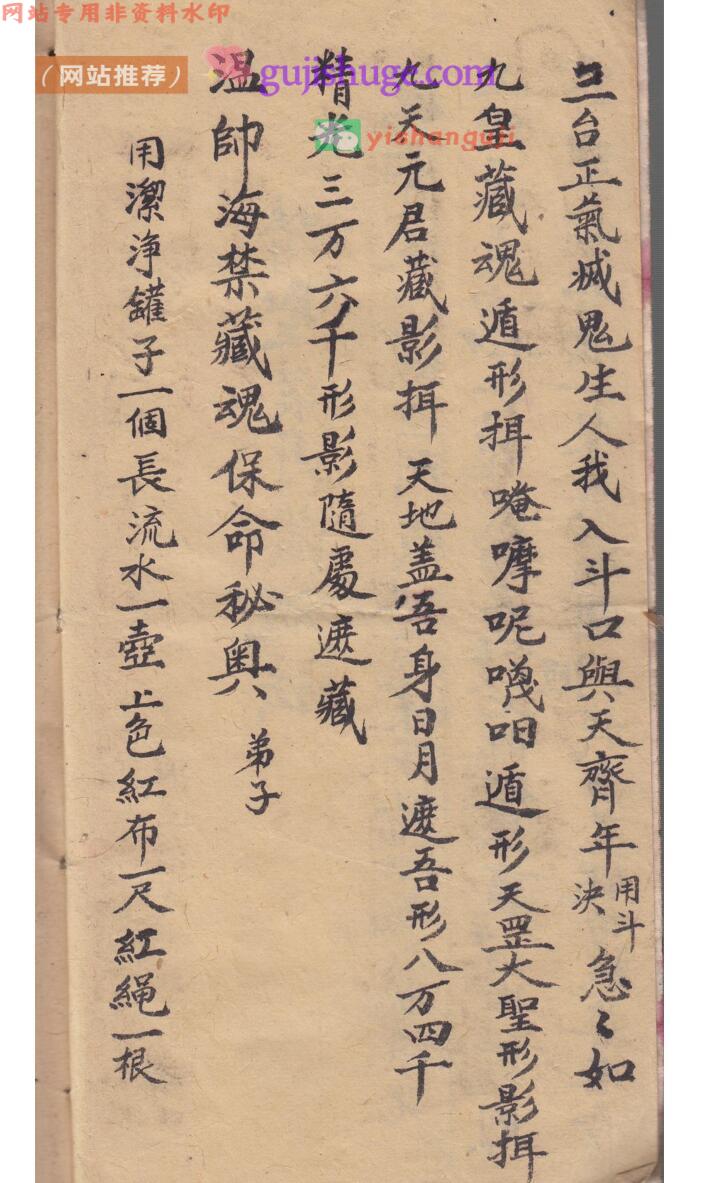 网站专用非资料水印
（网站推荐）
gujishuge.com
yishanguji
三台正氣滅鬼生人我入斗口與天齊年 用斗決 急〻如
九皇藏魂遁形挕唵嚤呢㘓呬遁形天罡大聖形影挕
九天元君藏影挕天地盖吾身日月遮吾形八万四千
精光三万六千形影隨處遮藏
溫帥海禁藏魂保命秘奥 弟子
用潔净罐子一個長流水一壺上色紅布一尺紅繩一根